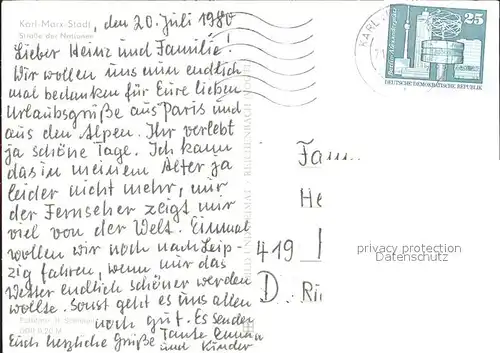 Karl-Marx-Stadt
Straße der Nationen
, den 20. Juli 1980
Lieber Heinz und Familie!
Wir wollen uns nun endlich
mal bedanken für Eure lieben
Urlaubsgrüße aus Paris und
aus den Alpen. Ihr verlebt
ja schöne Tage. Ich kann
das in meinem Alter ja
leider nicht mehr, mir
der Fernseher zeigt mir
viel von der Welt. Einmal
wollen wir noch nach Leip-
zig fahren, wenn nur das
Wetter endlich schöner werden
wollte. Sonst geht es uns allen
noch gut. Es senden
Euch herzliche Grüße Tante Emma
und Kinder
BILD UND HEIMAT REICHENBACH
KARL
25
DEUTSCHE DEMOKRATISCHE REPUBLIK
Fam
He
419
D.
Ri
privacy protection
Datenschutz